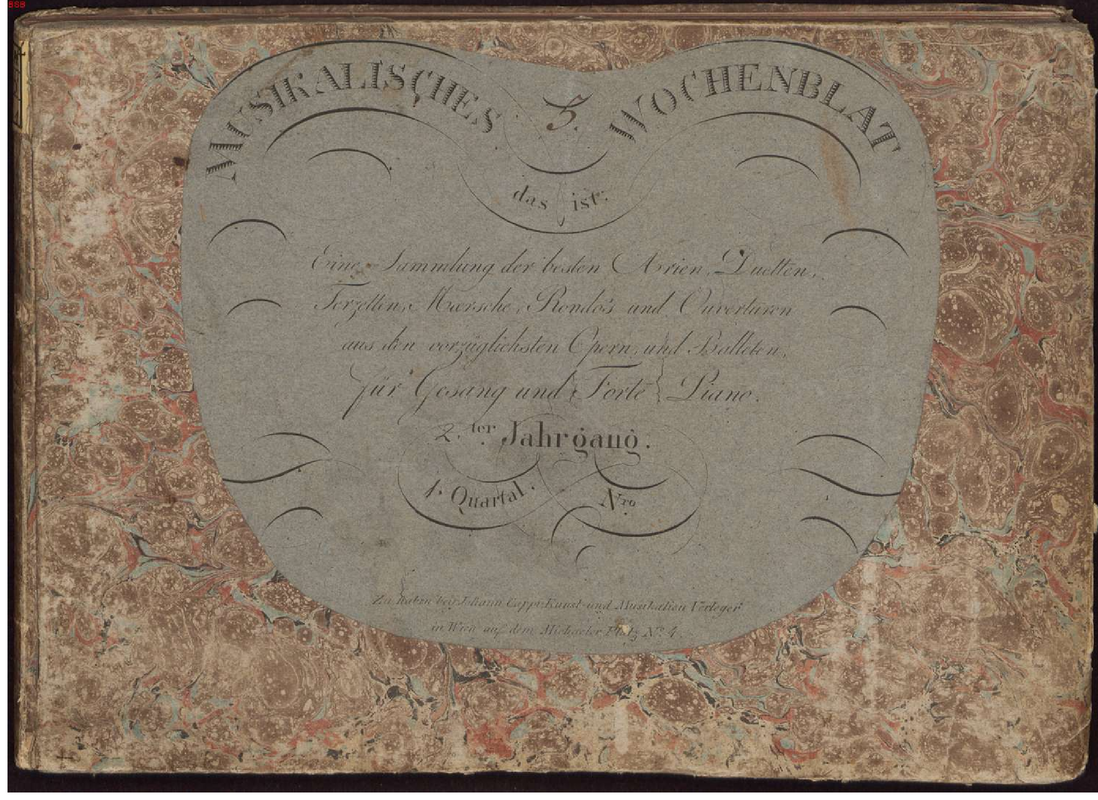 BSB
MUSIKALISCHES 5. WOCHENBLAT
das ist:
Eine Sammlung der besten Arien, Duetten,
Terzetten, Mœrsche, Rondo's und Ouverturen
aus den vorzüglichsten Opern, und Balleten,
für Gesang und Forte Piano.
2.ter Jahrgang.
1. Quartal. Nro
Zu haben bey Johann Cappi Kunst und Musikalien Verleger
in Wien auf dem Michaeler Platz No. 4.